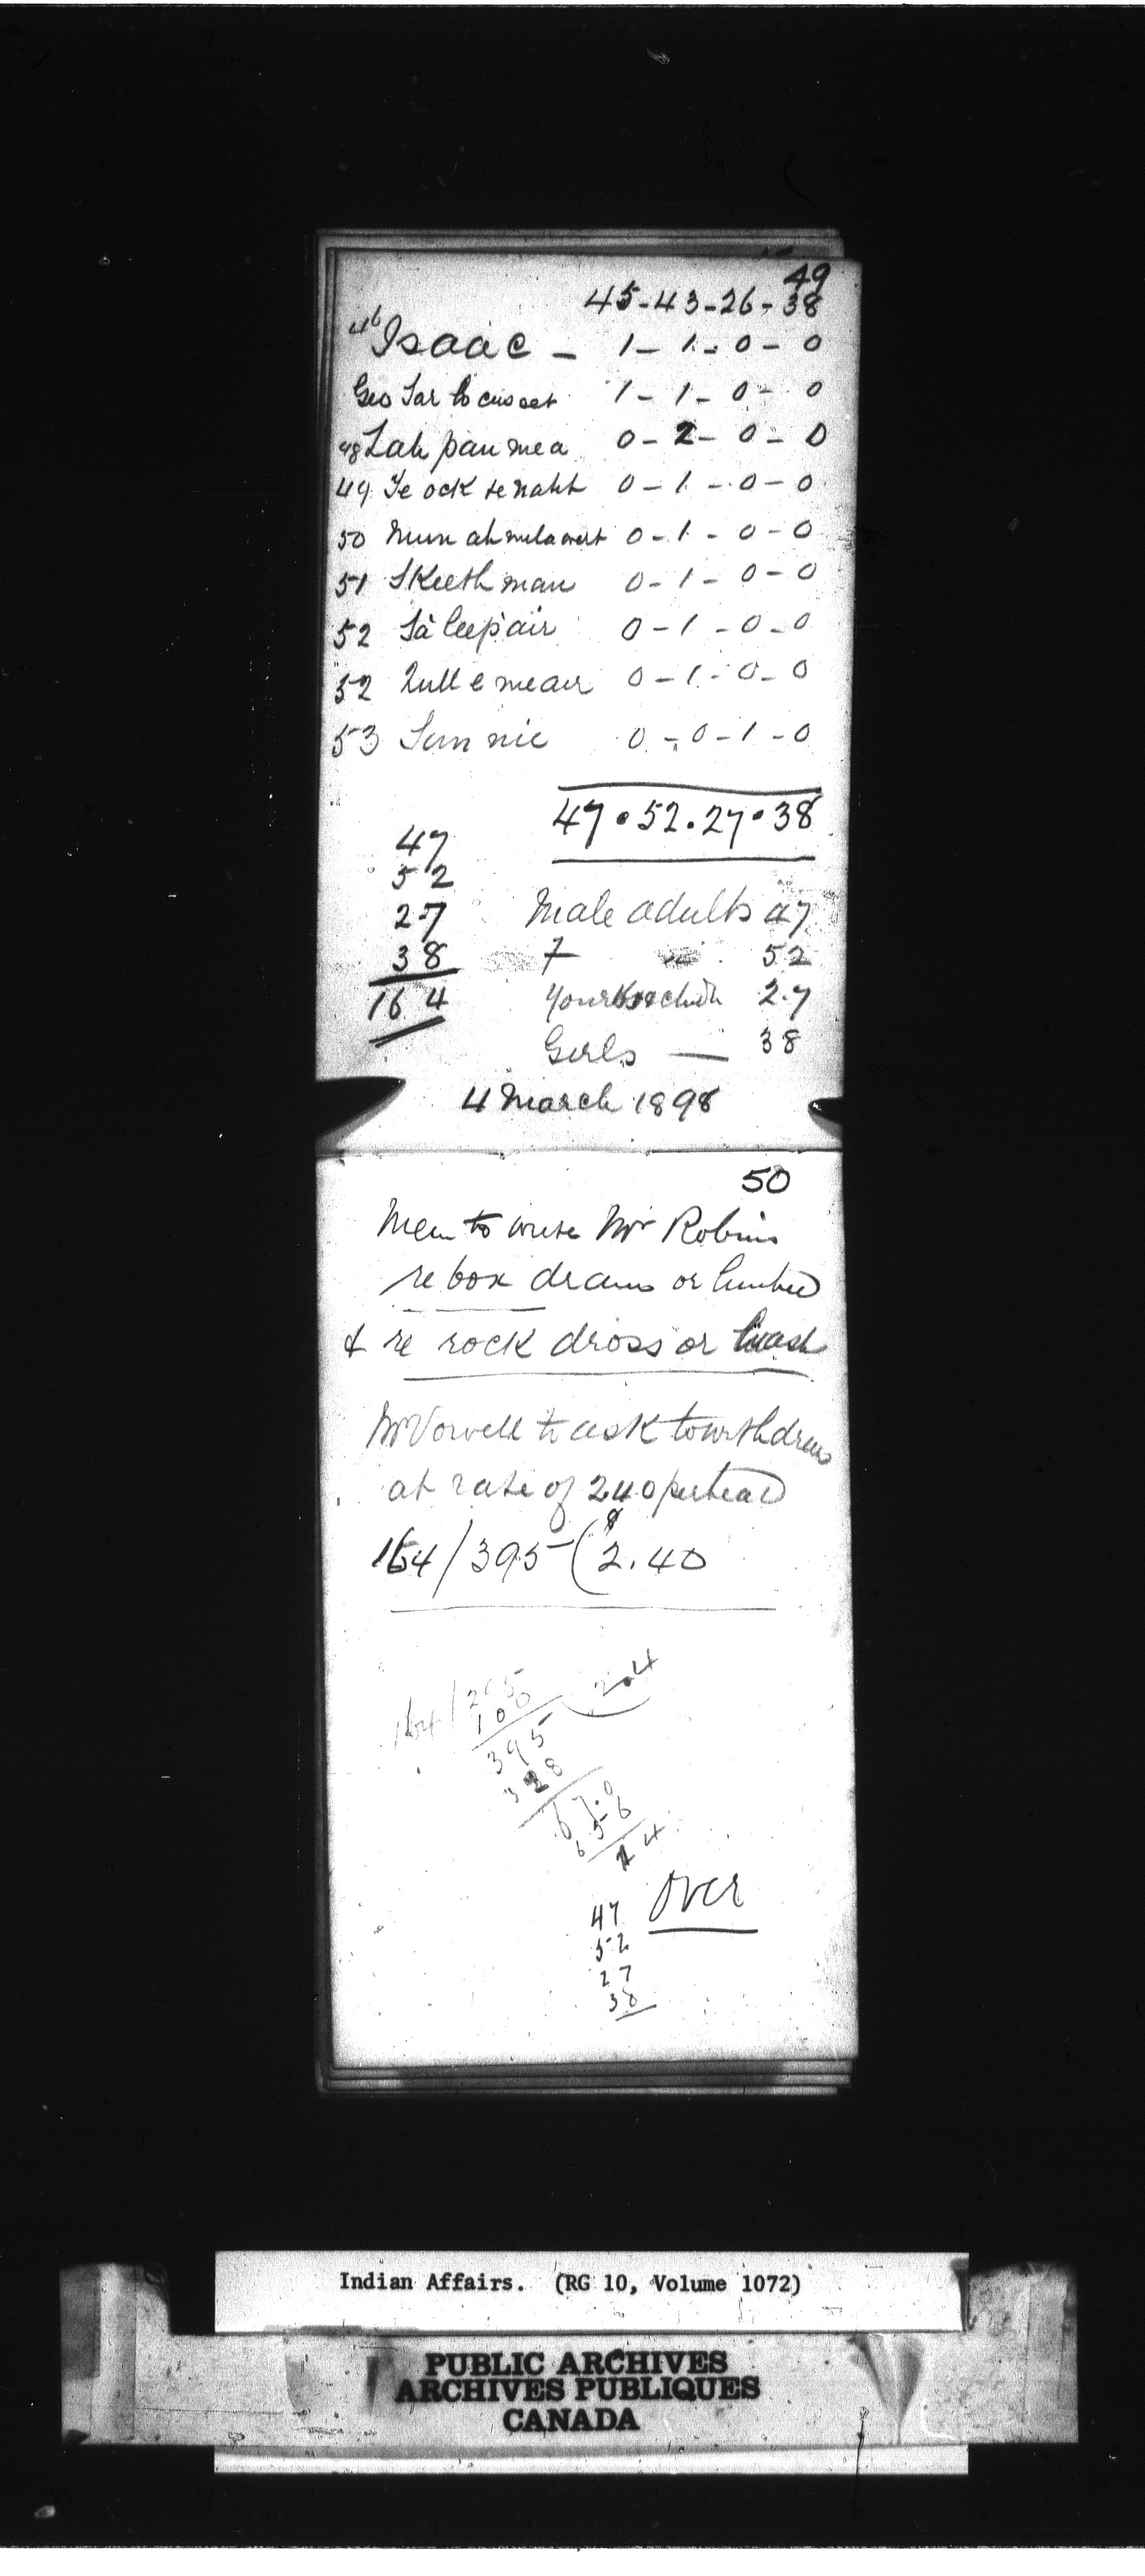 49
45-43-26-38
46 Isaac - 1-1-0-0
Geo 1-1-0-0
48 Lah pau mea 0-2-0-0
49 Te ock te naht 0-1-0-0
50 0-1-0-0
51 Skeeth man 0-1-0-0
52 0-1-0-0
52 0-1-0-0
53 0-0-1-0
47.52.27.38
47
52
27
38
164
Male adults 47
7 " 52
27
Girls — 38
4 March 1898
50
Mem to write Mr Robins
re box drams or
& re rock dross or
Mr Vowell to ask to withdraw
at rate of 240 per head
164/395($2.40
164/295(2.4
100
395
328
67.0
656
14
Over
47
52
27
38
Indian Affairs. (RG 10, Volume 1072)
PUBLIC ARCHIVES
ARCHIVES PUBLIQUES
CANADA